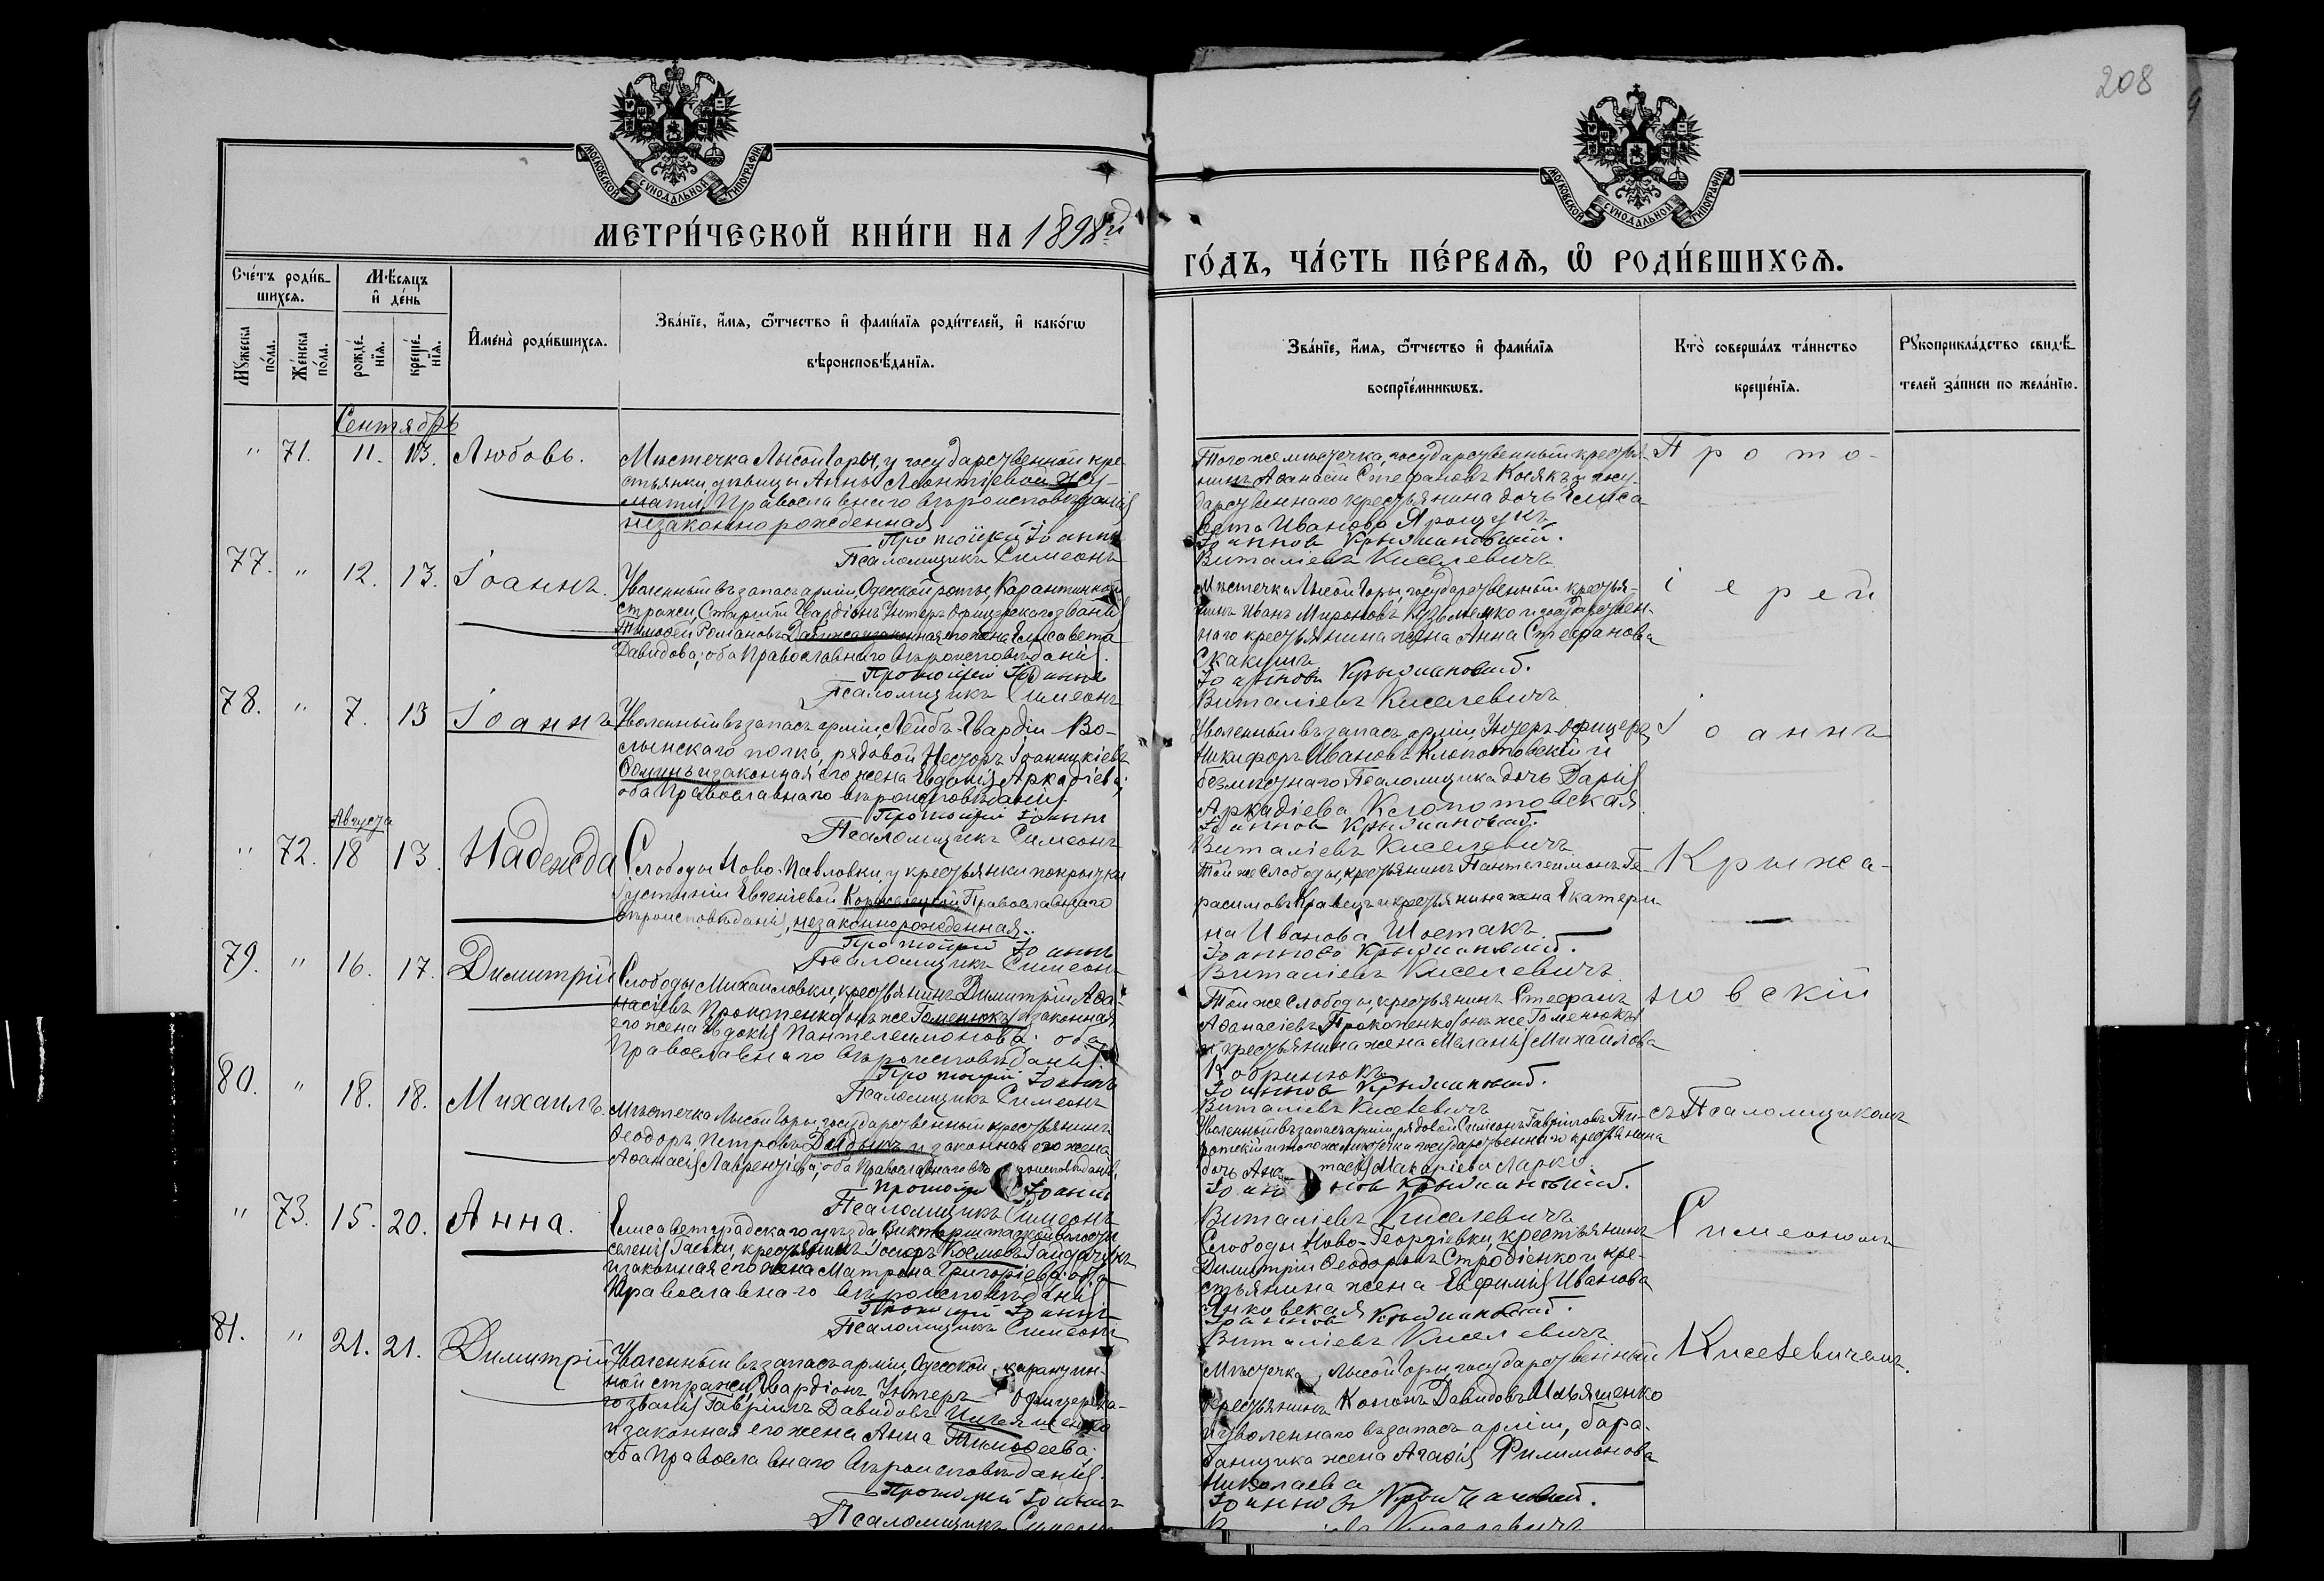 208
МОСКОВСКОЙ СУНОДАЛЬНОЙ ТИПОГРАФІИ
МОСКОВСКОЙ СУНОДАЛЬНОЙ ТИПОГРАФІИ
МЕТРИ́ЧЕСКОЙ КНИ́ГИ НА 1898й
ГО́ДЪ, ЧА́СТЬ ПЕ́РВАѦ, Ѡ РОДИ́ВШИХСѦ.
Сче́тъ роди́в-
шихсѧ.
Мꙋ́жеска
по́ла.
Же́нска
по́ла.
Мѣ́сѧцъ
и҆ де́нь
рожде́-
нїѧ.
креще́-
нїѧ.
И҆мена̀ роди́вшихсѧ.
Зва́нїе, и҆́мѧ, ѻ҆́тчество и҆ фами́лїѧ роди́телей, и҆ како́гѡ
вѣроисповѣ́данїѧ.
Зва́нїе, и҆́мѧ, ѻ҆́тчество и҆ фами́лїѧ
воспрїе́мникѡвъ.
Кто̀ соверша́лъ та́инство
креще́нїѧ.
Рꙋкоприкла́дство свидѣ́-
телей за́писи по жела́нїю.
Сентябрь
" 71. 11. 13. Любовь.
Мѣстечка Лысой Горы, у государственной кре-
стьянки дѣвицы Анны Леонтьевой
Православнаго вѣроисповѣданія
незаконнорожденная
Протоіерей Іоаннъ
Псаломщикъ Симеонъ
Того же мѣстечка, государственный крестья-
нинъ Аѳанасій Стефановъ Косякъ и госу-
дарственнаго крестьянина дочь Елиса
вета Иванова Ярощукъ
Іоанновъ Крыжановскій.
Виталіевъ Киселевичъ
Прото-
77. " 12. 13. Іоаннъ.
Уволенный въ запасъ арміи, Одесской роты, Карантинной
стражи, Старшій Гвардіонъ Унтеръ Офицерскаго званія
Тимоѳей Романовъ и законная его жена Елисавета
Давидова; оба Православнаго вѣроисповѣданія.
Протоіерей Іоаннъ
Псаломщикъ Симеонъ
Мѣстечка Лысой Горы, государственный крестья-
нинъ Иванъ Мироновъ Кузьменко и государствен-
наго крестьянина жена Анна Стефанова
Скакунъ
Іоанновъ Крыжановскій.
Виталіевъ Киселевичъ
іерей
78. " 7. 13 Іоаннъ
Уволенный въ запасъ арміи, Лейбъ-Гвардіи Во-
лынскаго полка, рядовой Несторъ Іоанникіевъ
и законная его жена Евдокія Аркадіева;
оба Православнаго вѣроисповѣданія.
Протоіерей Іоаннъ
Псаломщикъ Симеонъ
Уволенный въ запасъ арміи, Унтеръ-Офицеръ
Никифоръ Ивановъ Клопотовскій и
безмѣстнаго Псаломщика дочь Дарія
Аркадіева Клопотовская
Іоанновъ Крыжановскій.
Виталіевъ Киселевичъ
Іоаннъ
Августа
" 72. 18 13. Надежда
Слободы Ново-Павловки, у крестьянки покрытки
Іустиніи Евгеніевой Православнаго
вѣроисповѣданія, незаконнорожденная.
Протоіерей Іоаннъ
Псаломщикъ Симеонъ
Той же Слободы, крестьянинъ Пантелеимонъ Ге-
расимовъ Кравецъ и крестьянина жена Екатери
на Иванова Шостакъ.
Іоанновъ Крыжановскій.
Виталіевъ Киселевичъ
Крыжа-
79. " 16. 17. Димитрій
Слободы Михайловки, крестьянинъ Димитрій Аѳа-
насіевъ Прокопенко онъ же Гоменюкъ и законная
его жена Евдокія Пантелеимонова: оба
Православнаго вѣроисповѣданія.
Протоіерей Іоаннъ
Псаломщикъ Симеонъ
Той же Слободы, крестьянинъ Стефанъ
Аѳанасіевъ Прокопенко (онъ же Гоменюкъ)
и крестьянина жена Меланія Михайлова
Бобринюкъ
Іоанновъ Крыжановскій.
Виталіевъ Киселевичъ
новскій
80. " 18. 18. Михаилъ.
Мѣстечка Лысой Горы, государственный крестьянинъ
Ѳеодоръ Петровъ и законная его жена
Аѳанасія Лаврентіева; оба Православнаго вѣроисповѣданія.
Протоіерей Іоаннъ
Псаломщикъ Симеонъ
Уволенный въ запасъ арміи рядовой Симеонъ Гавриловъ
и того же мѣстечка государственнаго крестьянина
дочь Анастасія Макаріева Ларко.
Іоанновъ Крыжановскій.
Виталіевъ Киселевичъ
съ Псаломщикомъ
" 73. 15. 20. Анна.
Елисаветградскаго уѣзда, волости
селенія Гаевки, крестьянинъ Косьмовъ Гайдачукъ
и законная его жена Матрона Григоріева: оба
Православнаго вѣроисповѣданія
Протоіерей Іоаннъ
Псаломщикъ Симеонъ
Слободы Ново-Георгіевки, крестьянинъ
Димитрій Ѳеодоровъ и кре-
стьянина жена Евфимія Иванова
Янковская
Іоанновъ Крыжановскій.
Виталіевъ Киселевичъ
Симеономъ
81. " 21. 21. Димитрій
Уволенный въ запасъ арміи, Одесской карантин-
ной стражи, Гвардіонъ Унтеръ Офицерска-
го званія Гавріилъ Давидовъ
и законная его жена Анна Тимоѳеева:
оба Православнаго вѣроисповѣданія.
Протоіерей Іоаннъ
Псаломщикъ Симеонъ
Мѣстечка Лысой Горы, государственный
крестьянинъ Кононъ Давидовъ Ильяшенко
и уволеннаго въ запасъ арміи, бара-
банщика жена Агаѳія Филимонова
Николаева
Іоанновъ Крыжановскій.
Киселевичъ
Киселевичемъ.